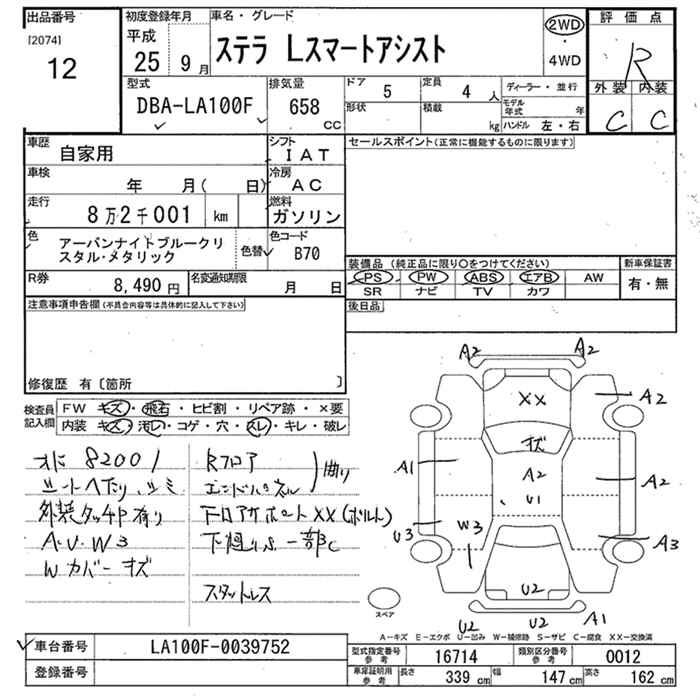 出品番号
[2074]
12
初度登録年月
平成
25年 9月
車名・グレード
ステラ Lスマートアシスト
2WD
・
4WD
評価点
R
外装 内装
C C
型式
DBA-LA100F
排気量
658
CC
ドア 5
定員 4 人
形状
積載
kg
ディーラー・並行
モデル年式 年
ハンドル 左・右
車歴
自家用
シフト
IAT
セールスポイント(正常に機能するものに限ります)
車検
年 月( 日)
冷房
AC
走行
8万2千001 km
燃料
ガソリン
色
アーバンナイトブルークリ
スタル・メタリック
色替
色コード
B70
装備品 (純正品に限り〇をつけてください)
新車保証書
PS PW ABS エアB AW
SR ナビ TV カワ
有・無
R券
8,490円
名変通知期限
月 日
後日品
注意事項申告欄(不具合内容等は具体的に記入して下さい)
修復歴 有〔箇所 〕
検査員
記入欄
FW キズ・飛石・ヒビ割・リペア跡・×要
内装 キズ・汚レ・コゲ・穴・スレ・キレ・破レ
オド 82001
シートヘタリ、シミ
外装タッチP有り
A・U・W3
W カバー キズ
Rフロア
エンドパネル
曲り
フロアサポートXX(ボルト)
下廻りS 一部C
スタットレス
A2
A2
XX
A2
キズ
A1
A2
U1
A2
U3
W3
A3
U2
U2
U2
A1
スペア
A―キズ E―エクボ U―凹み W―補修跡 S―サビ C―腐食 XX―交換済
車台番号
LA100F-0039752
型式指定番号
参考
16714
類別区分番号
参考
0012
登録番号
車庫証明用
参考
長さ 339 cm
幅 147 cm
高さ 162 cm